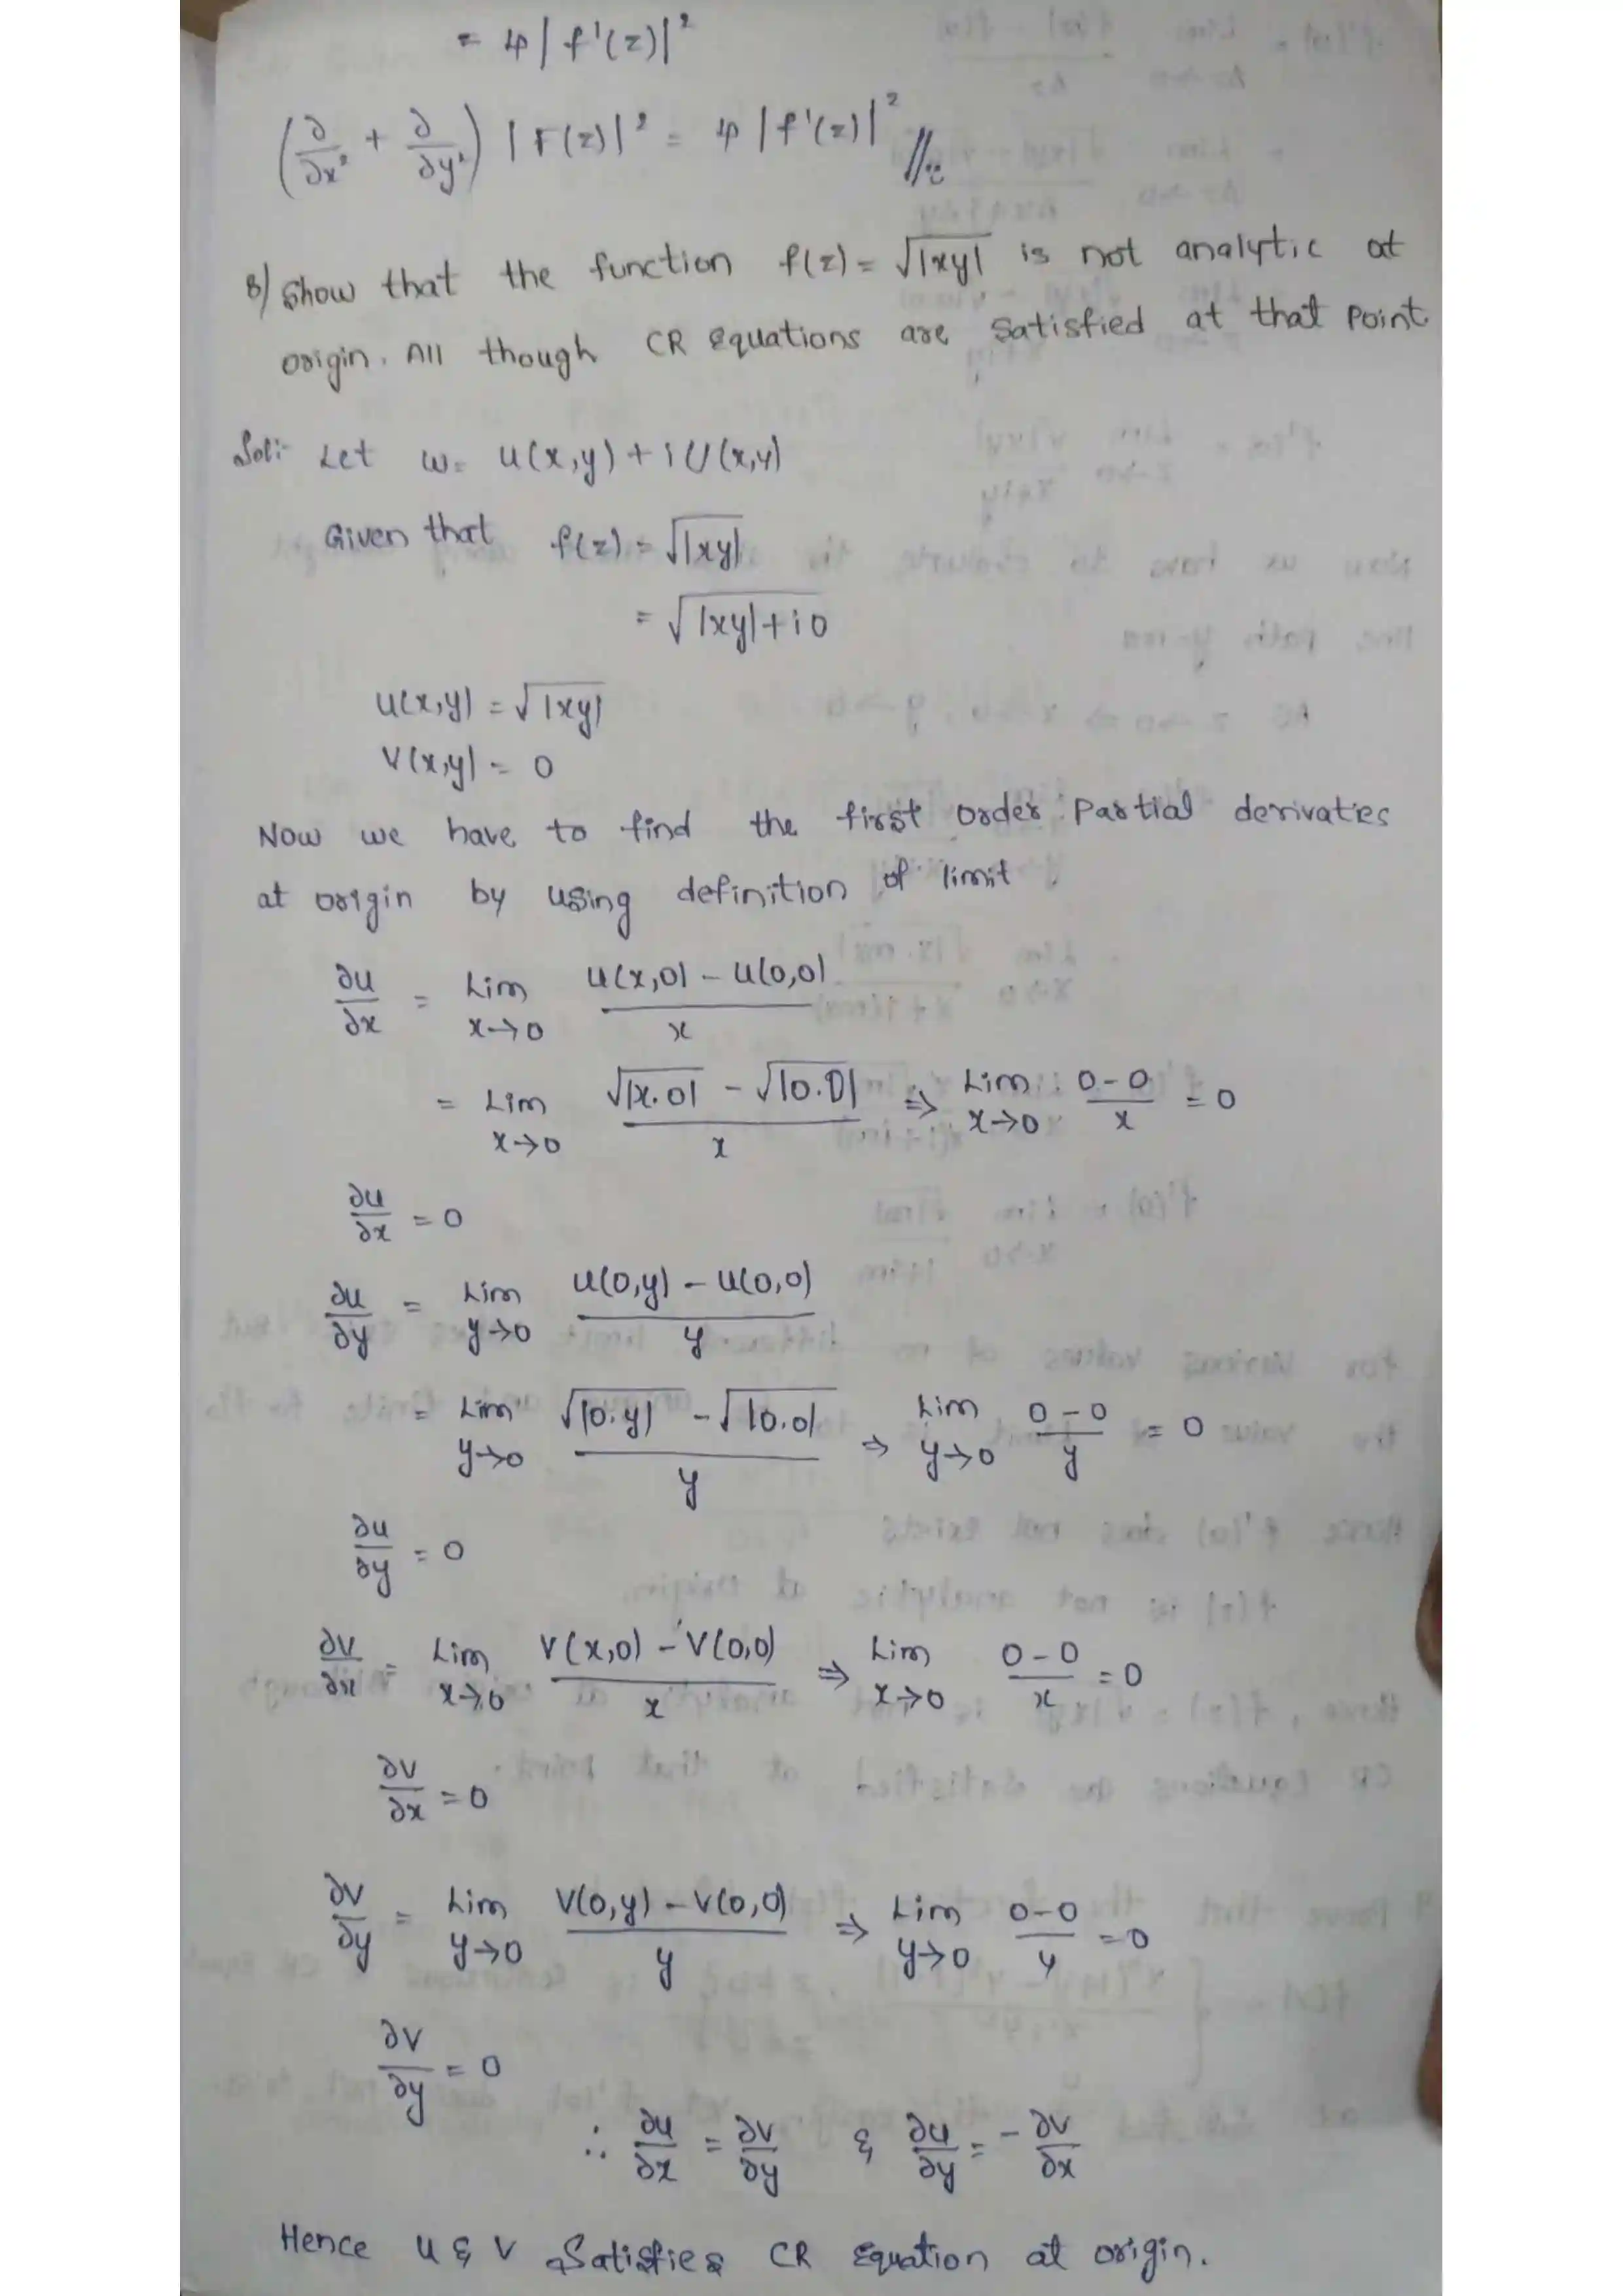 = 4|f'(z)|²
(∂/∂x² + ∂/∂y²) |F(z)|² = 4|f'(z)|² //
8) Show that the function f(z) = √|xy| is not analytic at
origin. All though CR Equations are satisfied at that point
Sol:- Let w = u(x,y) + iU(x,y)
Given that f(z) = √|xy|
= √|xy|+i0
u(x,y) = √|xy|
V(x,y) = 0
Now we have to find the first order partial derivaties
at origin by using definition of limit.
∂u/∂x = Lim x→0 u(x,0) - u(0,0) / x
= Lim x→0 √|x.0| - √|0.0| / x ⇒ Lim x→0 0-0 / x = 0
∂u/∂x = 0
∂u/∂y = Lim y→0 u(0,y) - u(0,0) / y
= Lim y→0 √|0.y| - √|0.0| / y ⇒ Lim y→0 0-0 / y = 0
∂u/∂y = 0
∂v/∂x = Lim x→0 V(x,0) - V(0,0) / x ⇒ Lim x→0 0-0 / x = 0
∂v/∂x = 0
∂v/∂y = Lim y→0 V(0,y) - V(0,0) / y ⇒ Lim y→0 0-0 / y = 0
∂v/∂y = 0
∴ ∂u/∂x = ∂v/∂y & ∂u/∂y = - ∂v/∂x
Hence u & v Satisfies CR Equation at origin.